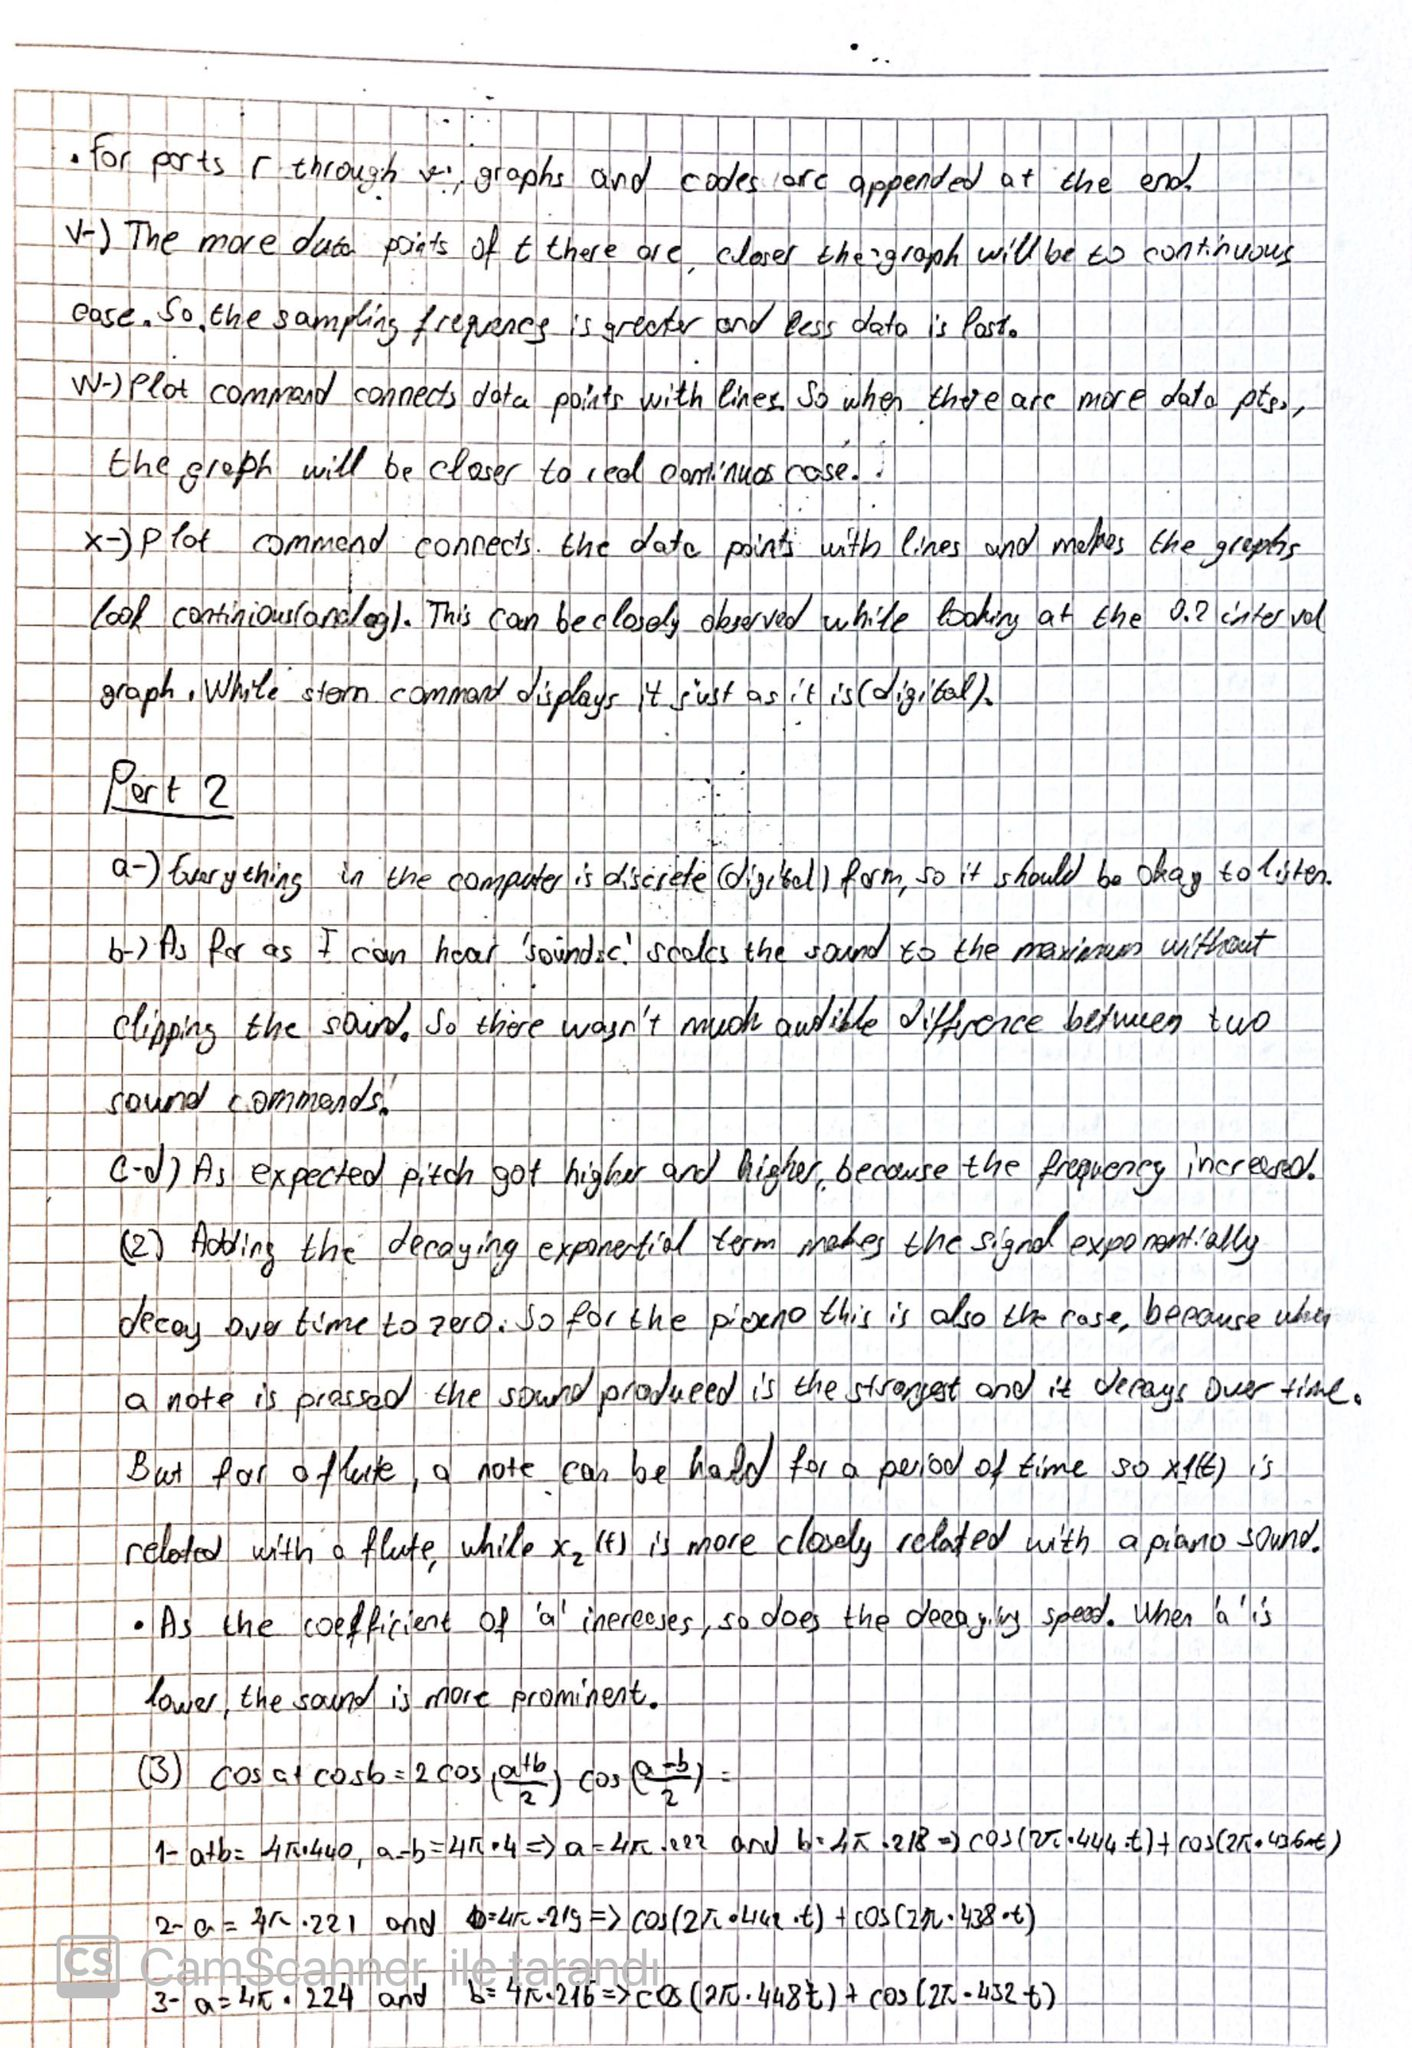 • For parts r through v, graphs and codes are appended at the end.
v-) The more data points of t there are, closer the graph will be to continuous
case. So, the sampling frequency is greater and less data is lost.
w-) Plot command connects data points with lines. So when there are more data pts.,
the graph will be closer to real continuos case.
x-) Plot command connects the data points with lines and makes the graphs
look continious(analog). This can be closely observed while looking at the 0.2 interval
graph. While stem command displays it just as it is (digital).
Part 2
a-) Everything in the computer is discrete (digital) form, so it should be okay to listen.
b-) As far as I can hear 'soundsc' scales the sound to the maximum without
clipping the sound. So there wasn't much audible difference between two
sound commands.
c-d) As expected pitch got higher and higher, because the frequency increased.
(2) Adding the decaying exponential term makes the signal exponentially
decay over time to zero. So for the piano this is also the case, because when
a note is pressed the sound produced is the strongest and it decays over time.
But for a flute, a note can be hald for a period of time so x1(t) is
related with a flute, while x₂(t) is more closely related with a piano sound.
• As the coefficient of 'a' increeses, so does the decaying speed. When 'a' is
lower, the sound is more prominent.
(3) cos a + cos b = 2 cos (a+b/2) cos (a-b/2) =
1- a+b = 4π•440, a-b = 4π•4 => a = 4π.222 and b = 4π.218 => cos(2π•444.t) + cos(2π•436•t)
2- a = 4π.221 and b = 4π.219 => cos(2π•442.t) + cos(2π.438•t)
CS CamScanner ile tarandı
3- a = 4π.224 and b = 4π.216 => cos(2π.448t) + cos(2π.432t)